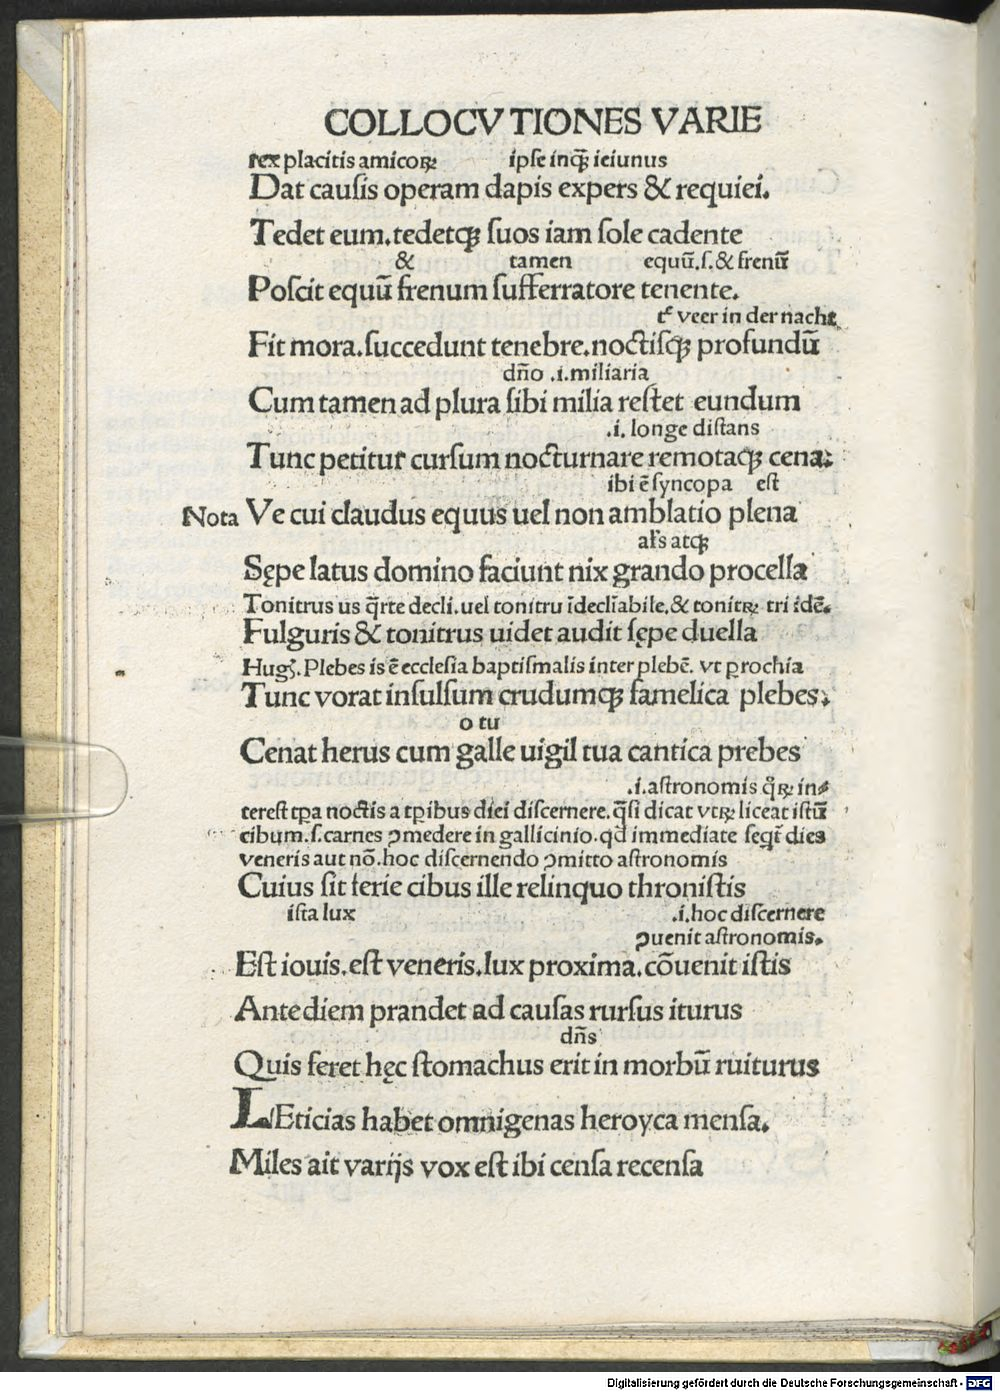 COLLOCVTIONES VARIE
rex placitis amicoꝝ ipſe inqꝫ ieiunus
Dat cauſis operam dapis expers & requiei.
Tedet eum.tedetqꝫ ſuos iam ſole cadente
& tamen equū.ſ.& frenū
Poſcit equū frenum ſufferratore tenente.
veer in der nacht
Fit mora.ſuccedunt tenebre.noctiſqꝫ profundū
dño .i.miliaria
Cum tamen ad plura ſibi milia reſtet eundum
.i. longe diſtans
Tunc petitur curſum nocturnare remotaqꝫ cena.
ibi ē ſyncopa eſt
Nota Ve cui claudus equus uel non amblatio plena
aĺs atqꝫ
Sępe latus domino faciunt nix grando procella
Tonitrus us q̄rte decli.uel tonitru īdecliābile.& tonitꝝ tri idē.
Fulguris & tonitrus uidet audit ſępe duella
Hugꝭ.Plebes is ē eccleſia baptiſmalis inter plebē. vt ꝑrochia
Tunc vorat inſulſum crudumqꝫ famelica plebes.
o tu
Cenat herus cum galle uigil tua cantica prebes
.i.aſtronomis qͦꝝ in⸗
tereſt tꝑa noctis a tꝑibus diei diſcernere.q̄ſi dicat vtꝝ liceat iſtū
cibum.ſ.carnes ꝯmedere in gallicinio.qd immediate ſeqt̄ dies
veneris aut nō.hoc diſcernendo ꝯmitto aſtronomis
Cuius ſit ferie cibus ille relinquo throniſtis
iſta lux .i.hoc diſcernere
ꝯuenit aſtronomis.
Eſt iouis.eſt veneris.lux proxima.cōuenit iſtis
Ante diem prandet ad cauſas rurſus iturus
dn̄s
Quis feret hęc ſtomachus erit in morbū ruiturus
LEticias habet omnigenas heroyca menſa.
Miles ait varijs vox eſt ibi cenſa recenſa
Digitalisierung gefördert durch die Deutsche Forschungsgemeinschaft - DFG